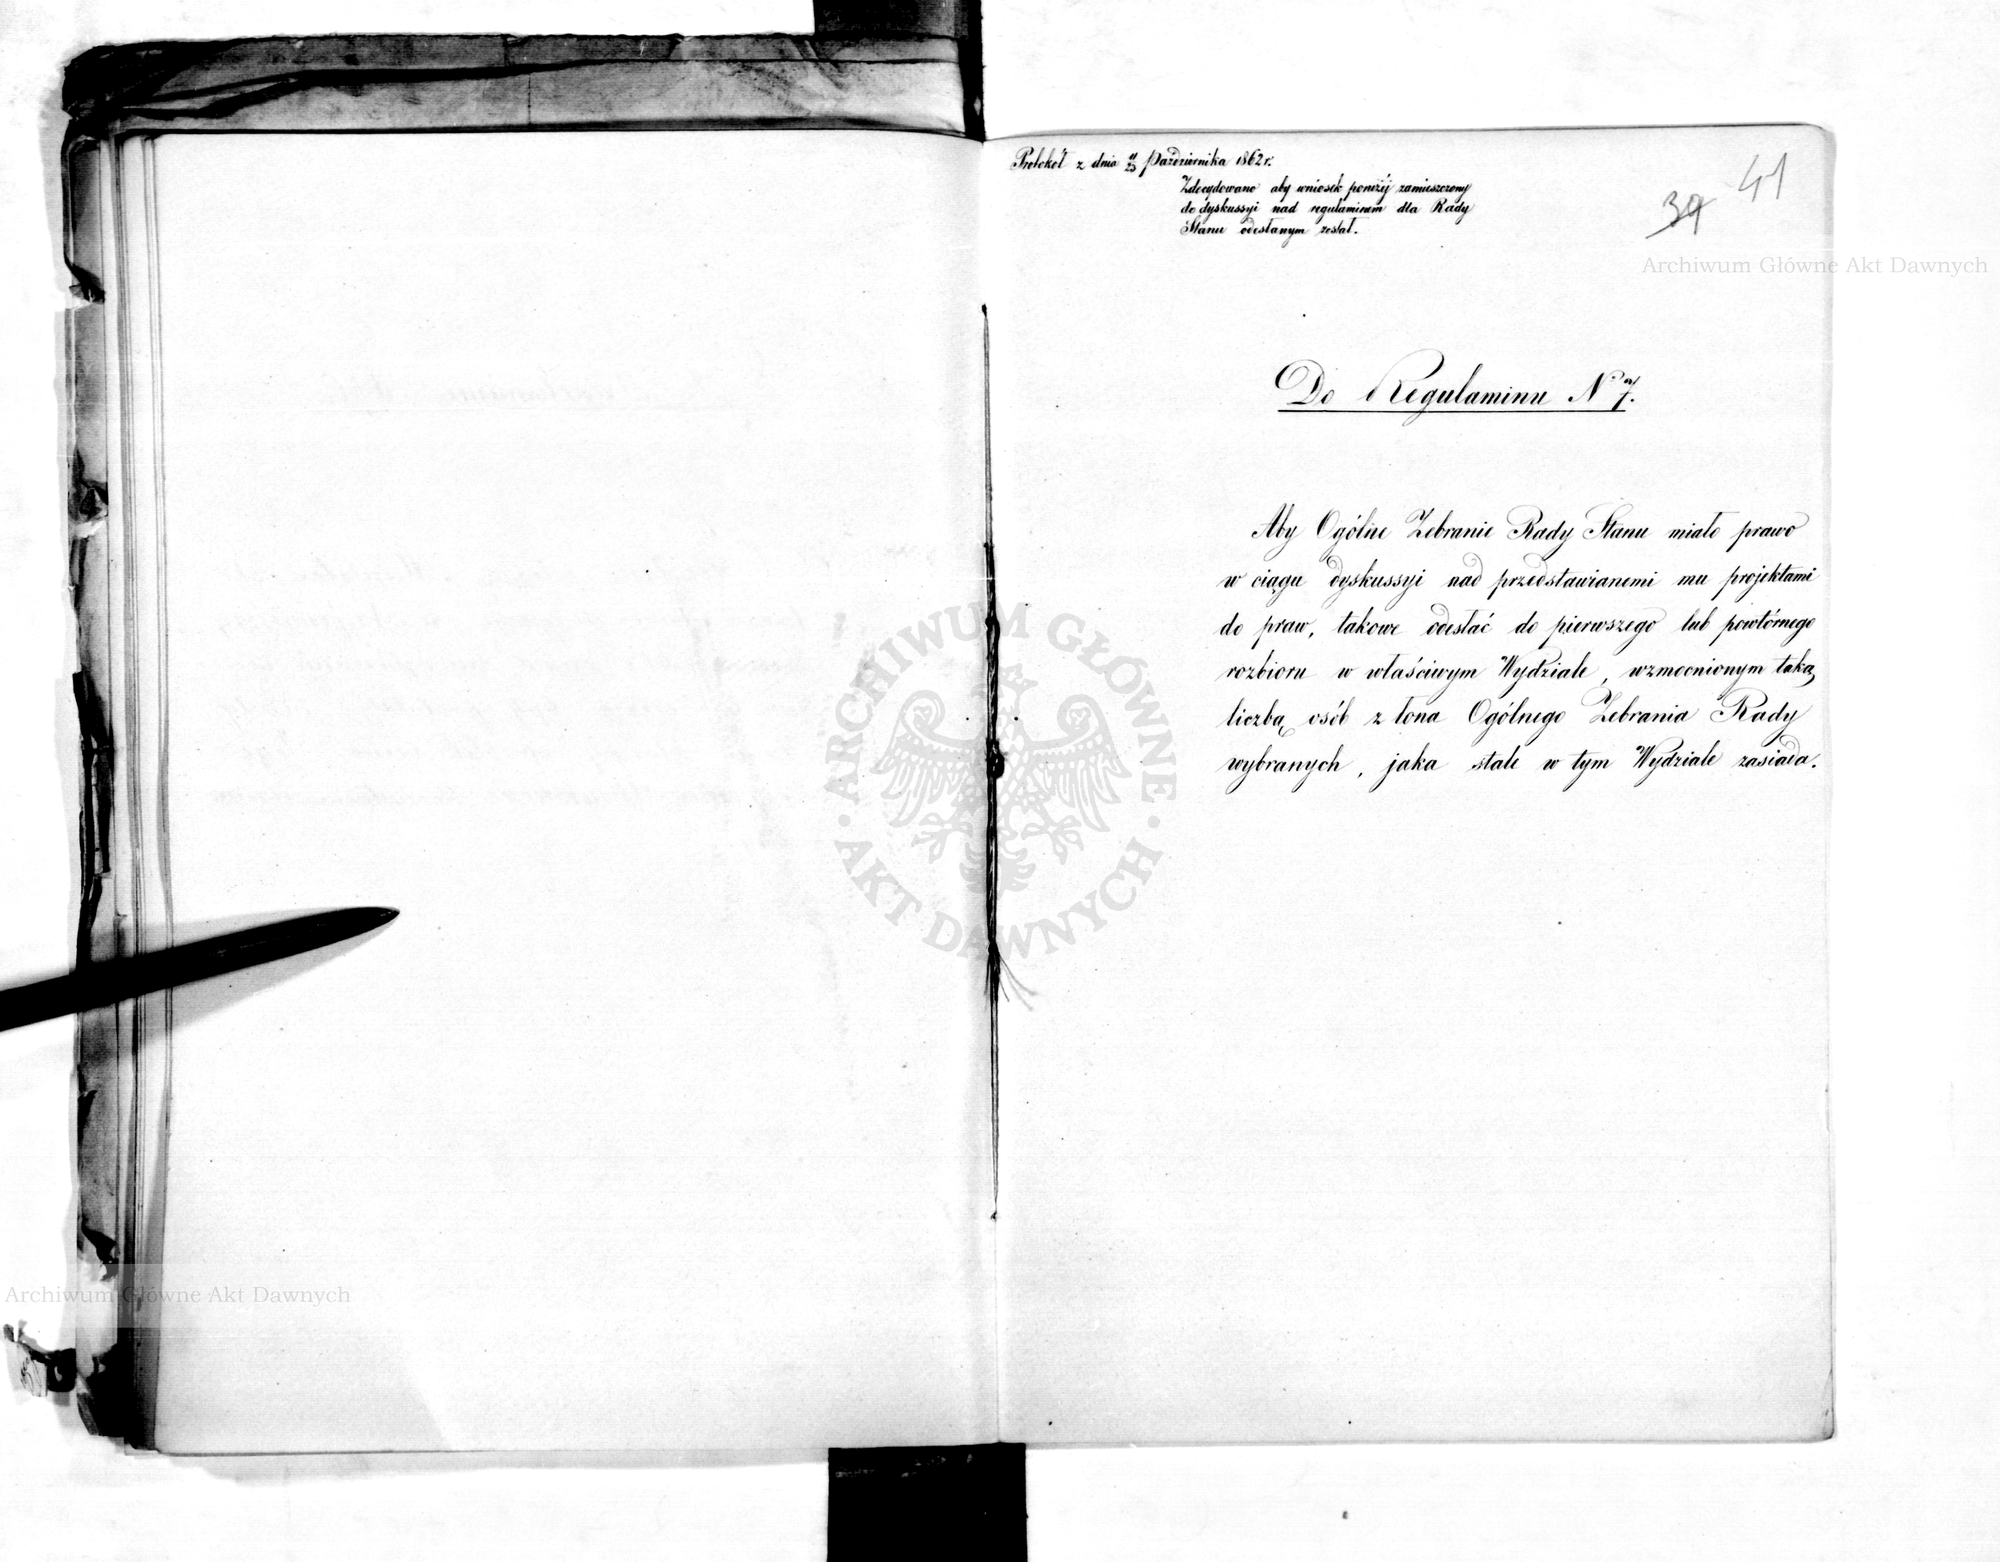 Protokół z dnia 11/23 Października 1862 r.
Zdecydowano aby wniosek poniżéj zamieszczony
do dyskussyi nad regulaminem dla Rady
Stanu odesłanym został.
41
39
Archiwum Główne Akt Dawnych
Do Regulaminu No 7.
Aby Ogólne Zebranie Rady Stanu miało prawo
w ciągu dyskussyi nad przedstawianemi mu projektami
do praw, takowe odesłać do pierwszego lub powtórnego
rozbioru w właściwym Wydziale, wzmocnionym taką
liczbą osób z łona Ogólnego Zebrania Rady
wybranych, jaka stale w tym Wydziale zasiada.
ARCHIWUM GŁÓWNE
AKT DAWNYCH
Archiwum Główne Akt Dawnych